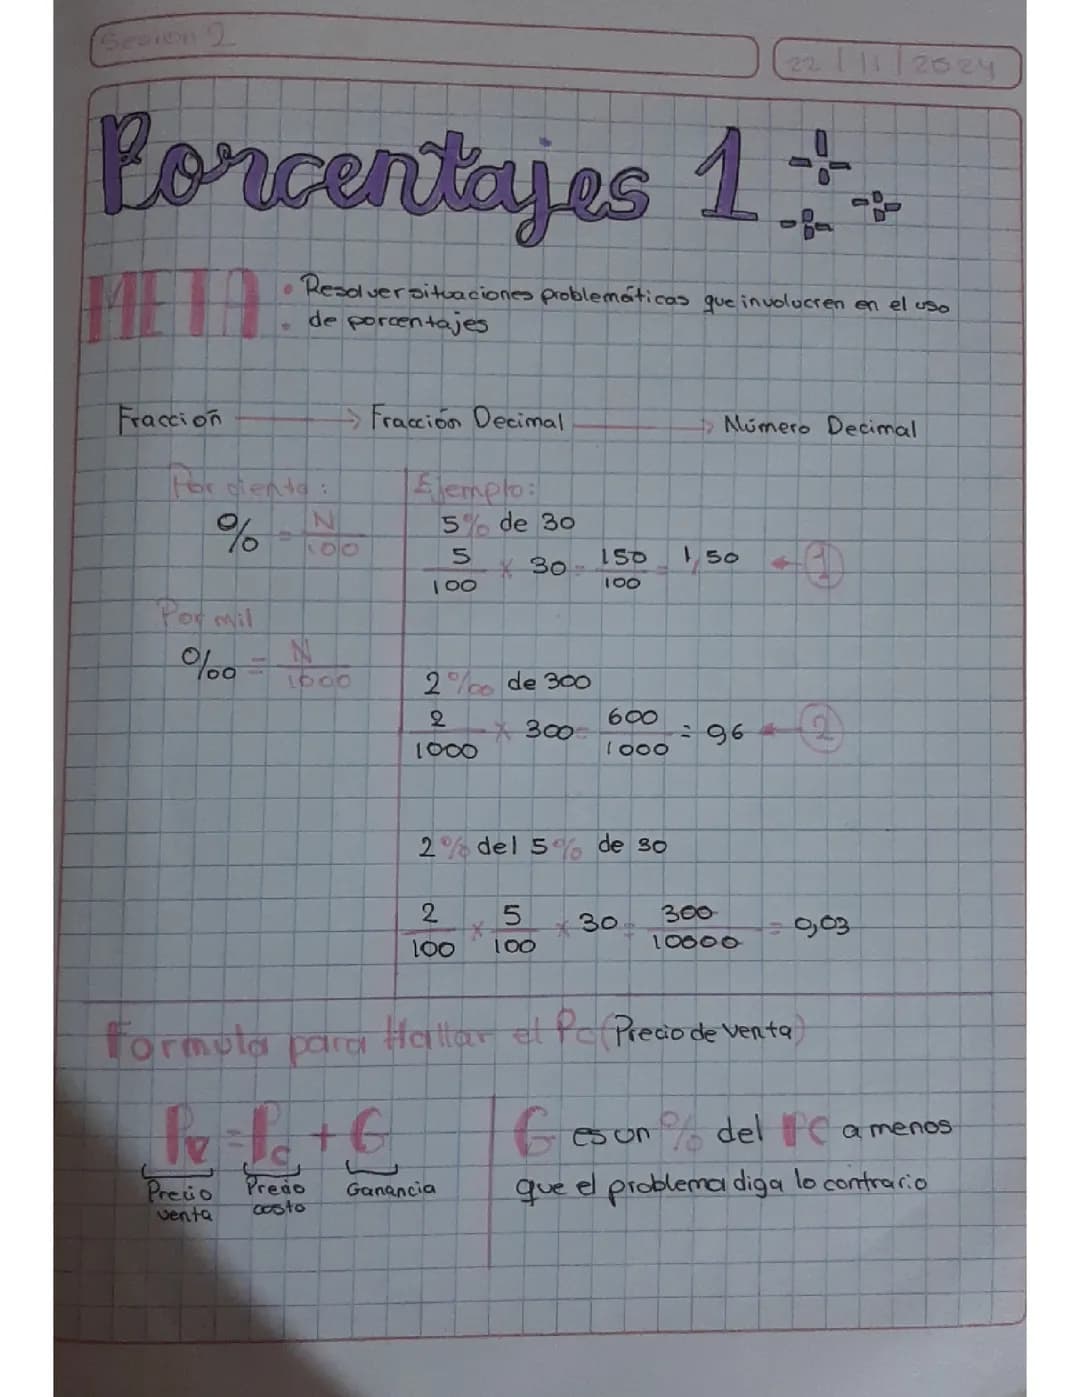 Sesion 2
22/11/2024
Porcentajes 1
META
• Resolver situaciones problemáticas que involucren en el uso
• de porcentajes
Fracción → Fracción Decimal → Número Decimal
Por ciento:
% = N/100
Ejemplo:
5% de 30
5/100 × 30 = 150/100 = 1,50 ← 1
Por mil
‰ = N/1000
2‰ de 300
2/1000 × 300 = 600/1000 = 96 ← 2
2% del 5% de 30
2/100 × 5/100 × 30 = 300/10000 = 0,03
Formula para Hallar el Pc (Precio de venta)
Pv = Pc + G
Precio venta
Precio costo
Ganancia
G es un % del PC a menos
que el problema diga lo contrario